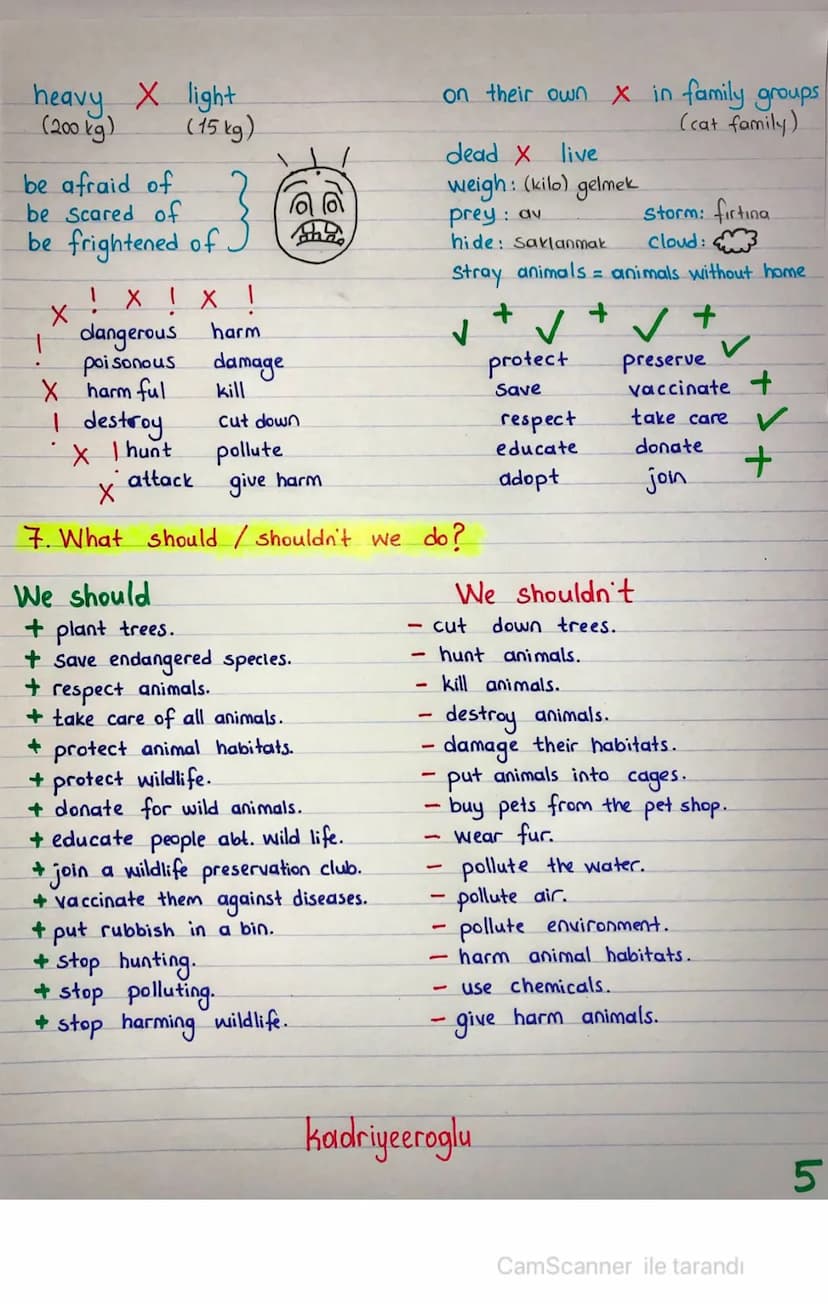 heavy X light
(200 kg) (15 kg)
be afraid of
be scared of
be frightened of
on their own X in family groups
(cat family)
dead X live
weigh: (kilo) gelmek
prey: av storm: fırtına
hide: saklanmak cloud:
Stray animals = animals without home
! X ! X !
X
! dangerous harm
poisonous damage
X harmful kill
! destroy cut down
X ! hunt pollute
X attack give harm
✓ + ✓ + ✓ +
protect preserve ✓
save vaccinate +
respect take care ✓
educate donate +
adopt join
7. What should / shouldn't we do?
We should
+ plant trees.
+ save endangered species.
+ respect animals.
+ take care of all animals.
+ protect animal habitats.
+ protect wildlife.
+ donate for wild animals.
+ educate people abt. wild life.
+ join a wildlife preservation club.
+ vaccinate them against diseases.
+ put rubbish in a bin.
+ stop hunting.
+ stop polluting.
+ stop harming wildlife.
We shouldn't
- cut down trees.
- hunt animals.
- kill animals.
- destroy animals.
- damage their habitats.
- put animals into cages.
- buy pets from the pet shop.
- wear fur.
- pollute the water.
- pollute air.
- pollute environment.
- harm animal habitats.
- use chemicals.
- give harm animals.
kadriyeeroglu
5
CamScanner ile tarandı